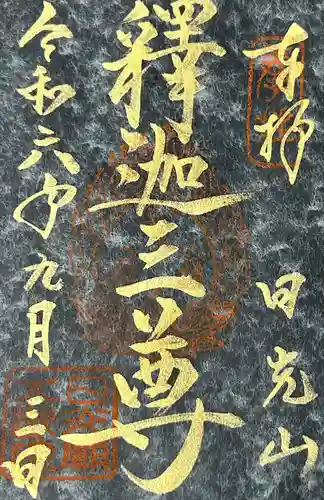 奉拝
日光山
釋迦三尊
令和六年九月三日